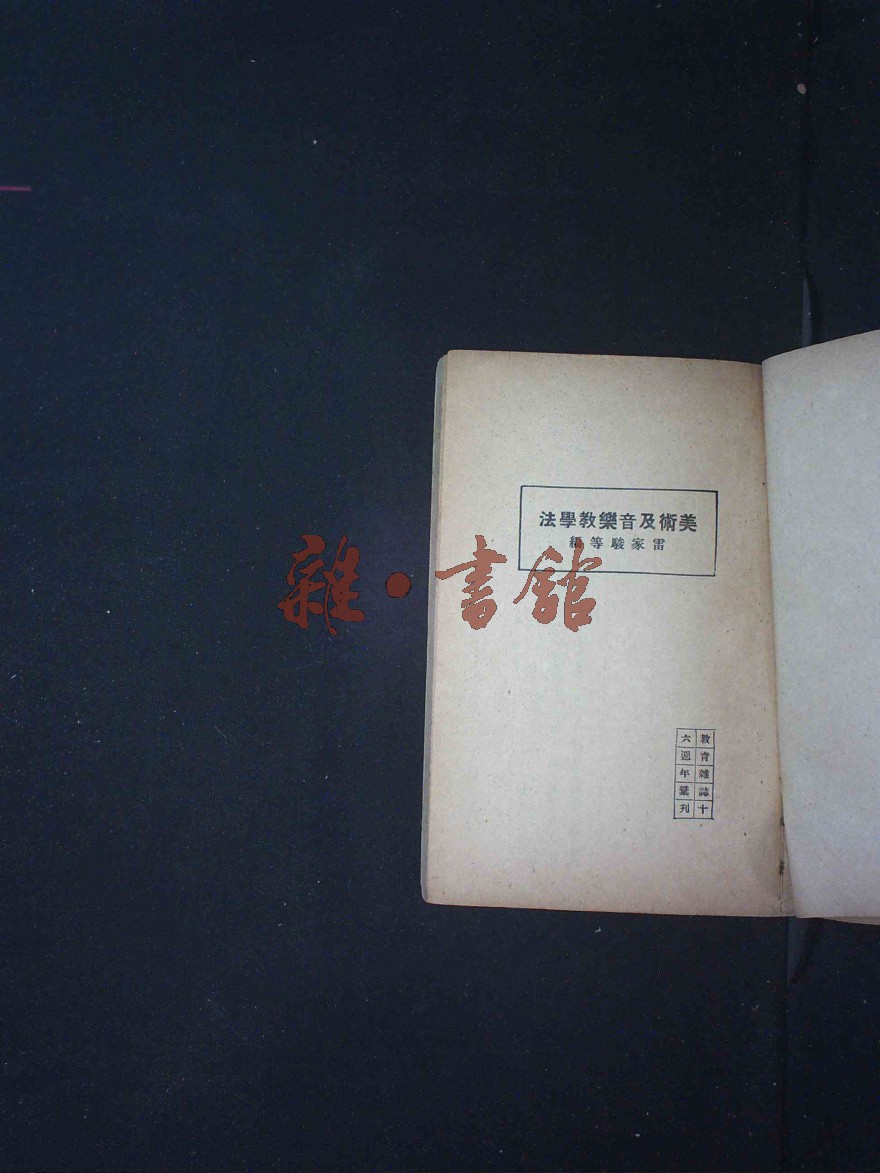 美術及音樂教學法
雷家駿等編
教育雜誌十
六週年彙刊
雜·書館